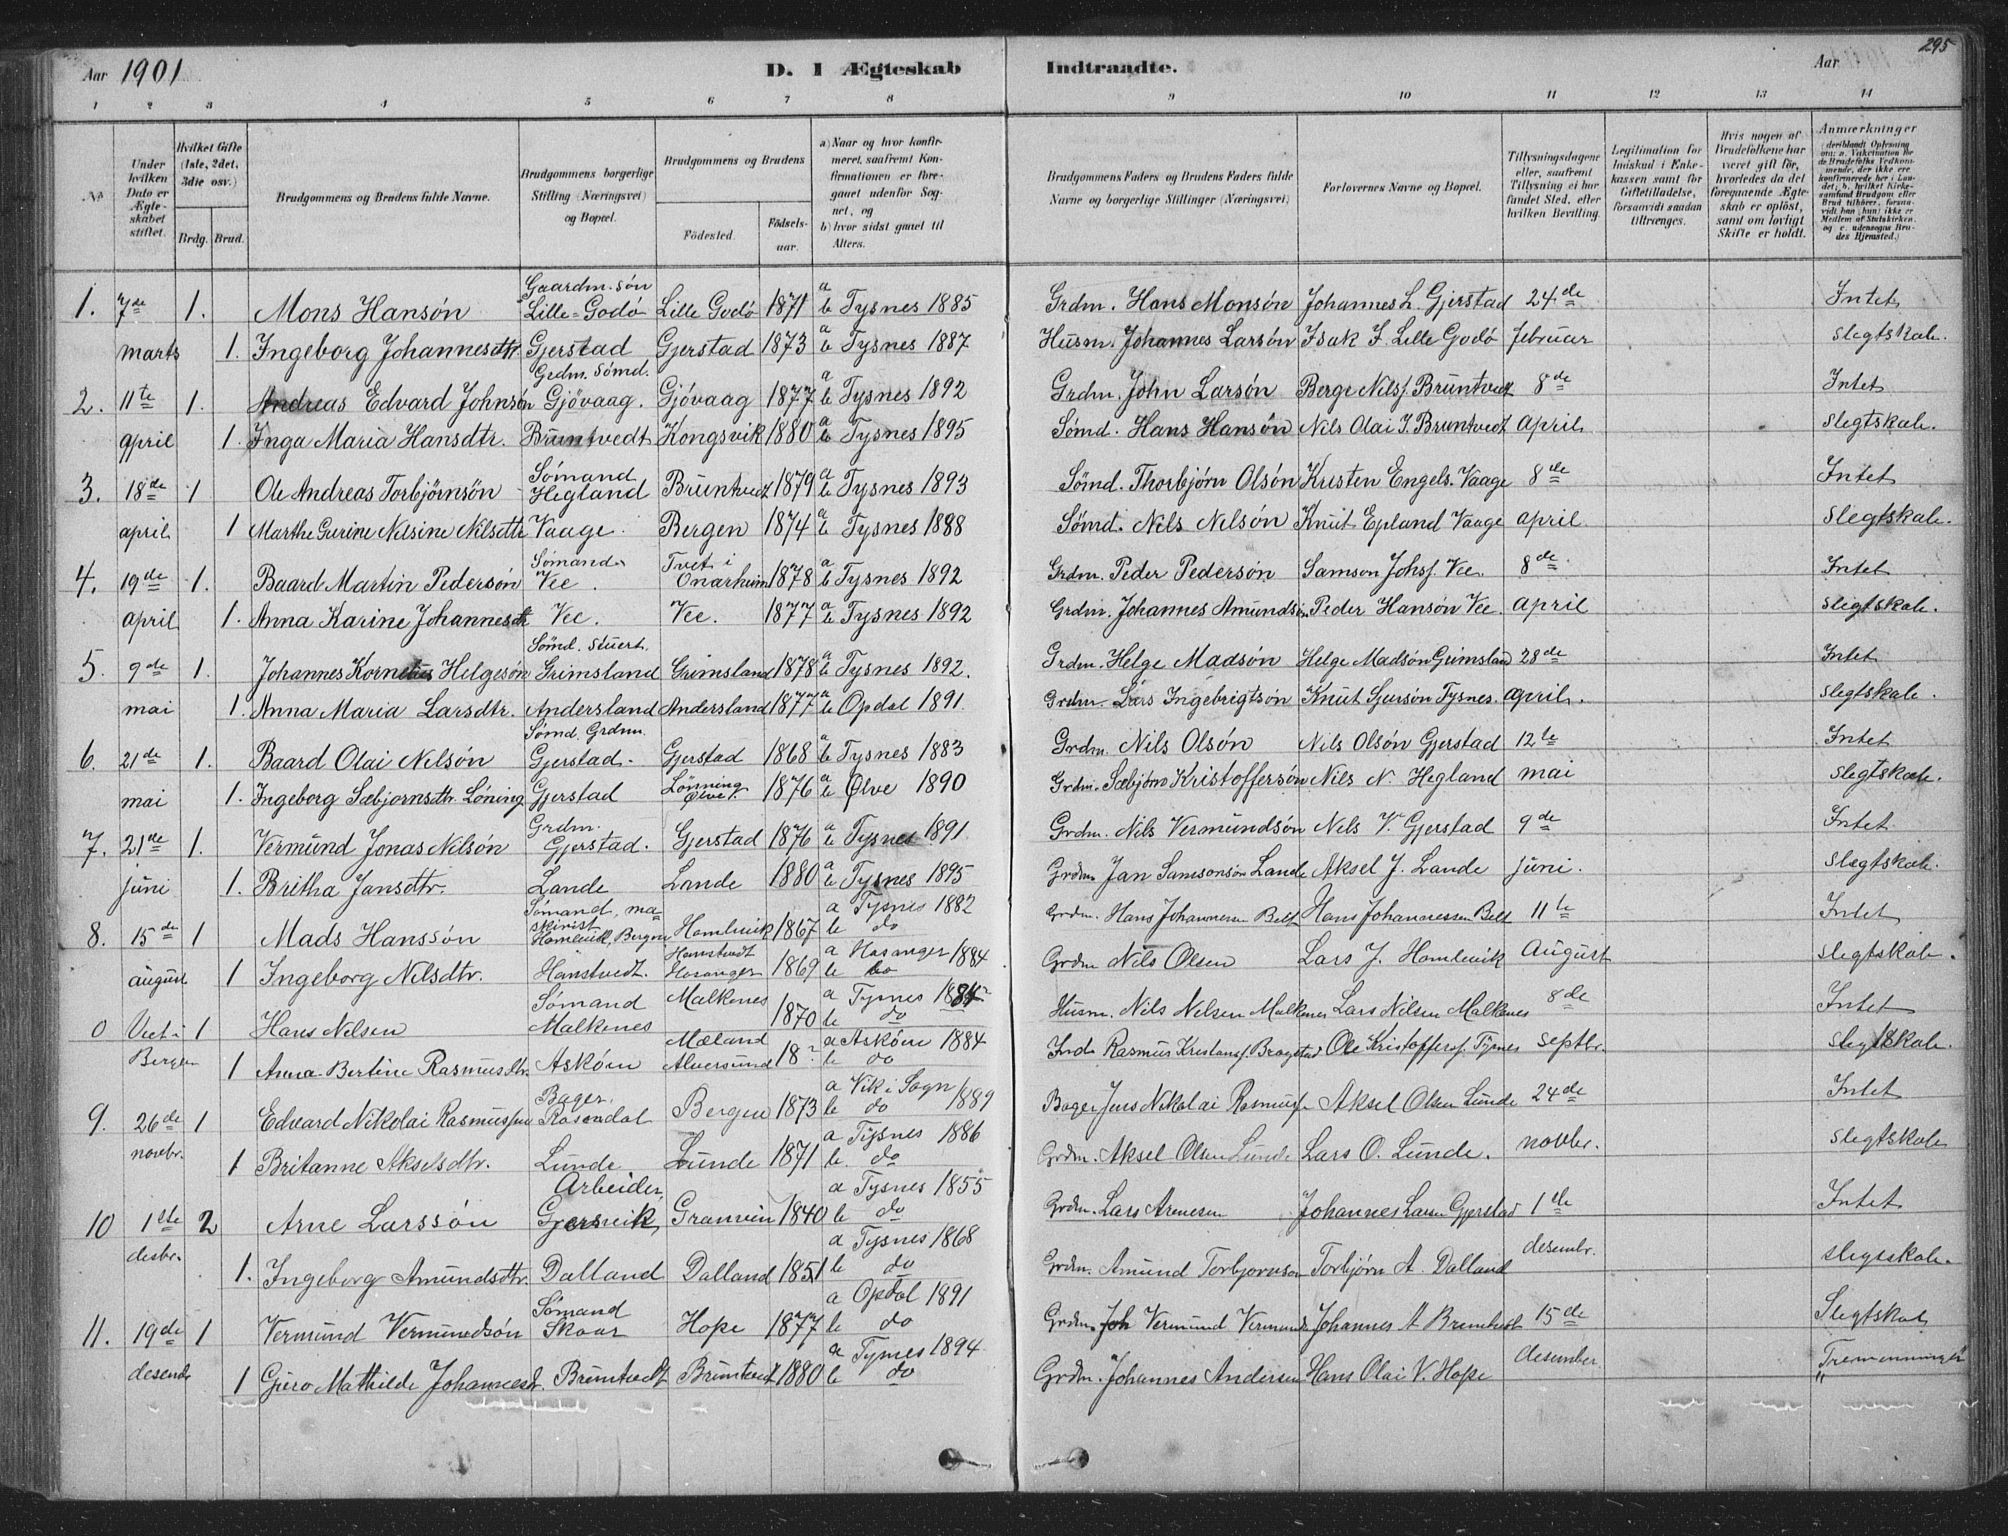 295
Aar 1901 D. 1 Ægteskab Indtraadte. Aar
1 2 3 4 5 6 7 8 9 10 11 12 13 14
No.
Under hvilken Dato er Ægteskabet stiftet.
Hvilket Gifte (1ste, 2det, 3die osv.)
Brdg. Brud.
Brudgommens og Brudens fulde Navne.
Brudgommens borgerlige Stilling (Næringsvei) og Bopæl.
Brudgommens og Brudens
Fødested. Fødselsaar.
a) Naar og hvor konfirmeret, saafremt Konfirmationen er foregaaet udenfor Sognet, og
b) hvor sidst gaaet til Alters.
Brudgommens Faders og Brudens Faders fulde Navne og borgerlige Stillinger (Næringsvei)
Forlovernes Navne og Bopæl.
Tillysningsdagene eller, saafremt Tillysning ei har fundet Sted, efter hvilken Bevilling.
Legitimation for Indskud i Enkekassen samt for Giftetilladelse, forsaavidt saadan tiltrænges.
Hvis nogen af Brudefolkene har været gift før, hvorledes da det foregaaende Ægteskab er opløst, samt om lovligt Skifte er holdt.
Anmærkninger (deriblandt Oplysning om: a. Vakcination for de Brudefolks Vedkommende, der ikke ere konfirmerede her i Landet; b. hvilket Kirkesamfund Brudgom eller Brud tilhører, forsaavidt han (hun) ikke er Medlem af Statskirken, og c. udensogns Brudes Hjemsted.)
1. 7de 1. Mons Hansøn Gaardm. søn Lille-Godø Lille Godø 1871 a b Tysnes 1885 Grdm. Hans Monsøn Johannes L. Gjerstad 24de Intet
marts 1. Ingeborg Johannesdtr. Gjerstad Gjerstad 1873 a b Tysnes 1887 Husm. Johannes Larsøn Isak J. Lille Godø februar slegtskab.
2. 11te 1. Andreas Edvard Johnsøn Grdm. Sømd. Gjövaag. Gjövaag 1877 a b Tysnes 1892 Grdm. John Larsøn Berge Nilsf. Bruntvedt 8de Intet
april 1. Inga Maria Hansdtr. Bruntvedt Kongsvik 1880 a b Tysnes 1895 Sømd. Hans Hansøn Nils Olai J. Bruntvedt april slegtskab.
3. 18de 1 Ole Andreas Torbjörnsön Sömand Hegland Bruntvedt 1879 a b Tysnes 1893 Sömd. Thorbjørn Olsön Kristen Engels. Vaage 8de Intet
april 1 Marthe Gurine Nilsine Nilsdtr Vaage. Bergen 1874 a b Tysnes 1888 Sömd. Nils Nilsön Knut Epland Vaage april slegtskab.
4. 19de 1. Baard Martin Pedersøn Sømand Vee. Tvet i Onarheim 1878 a b Tysnes 1892 Grdm. Peder Pedersøn Samson Johsf. Vee. 8de Intet
april 1. Anna Karine Johannesdtr Vee. Vee. 1877 a b Tysnes 1892 Grdm. Johannes Amundsøn Peder Hansøn Vee april slegtskab.
5. 9de 1. Johannes Kornelius Helgesøn Sömd. Stuert. Grimsland Grimsland 1878 a b Tysnes 1892. Grdm. Helge Madsøn Helge Madsøn Grimsland 28de Intet
mai 1. Anna Maria Larsdtr. Andersland Andersland 1877 a b Opdal 1891 Grdm. Lars Ingebrigtsøn Knut Sjursøn Tysnes. april. slegtskab.
6. 21de 1. Baard Olai Nilsön Sömd. Grdm. Gjerstad. Gjerstad 1868 a b Tysnes 1883 Grdm. Nils Olsön Nils Olsön Gjerstad 12te Intet
mai 1. Ingeborg Sæbjørnsdtr. Löning Gjerstad Lönning Ølve. 1876 a b Ølve 1890 Grdm. Sæbjörn Kristoffersön Nils N. Hegland mai slegtskab.
7. 21de 1. Vermund Jonas Nilsön Grdm. Gjerstad. Gjerstad 1876 a b Tysnes 1891 Grdm. Nils Vermundsön Nils V. Gjerstad 9de Intet
juni 1. Britha Jansdtr. Lande Lande 1880 a b Tysnes 1895 Grdm Jan Samsonsön Lande Aksel J. Lande juni. slegtskab.
8. 15de 1 Mads Hanssön Sömand, maskinist Hamlevik, Bergen Hamlevik 1867 a Tysnes 1882 b do Grdm. Hans Johannesen Belt Hans Johannessen Belt 11te Intet
august 1 Ingeborg Nilsdtr. Hanstvedt. Hanstvedt Hosanger 1869 a Hosanger 1884 b do Grdm Nils Olsen Lars J. Hamlevik August slegtskab.
0 Viet i 1 Hans Nilsen Sömand Malkenes Malkenes 1870 a Tysnes 1884 b do Husm. Nils Nelsen Malkenes Lars Nilsen Malkenes 8de Intet
Bergen 1 Anna Bertine Rasmusdtr. Asköen Mæland Alversund 18? a Asköen 1884 b do Inds Rasmus Kristansf. Bragstad Ole Kristoffersf. Tysnes septbr. slegtskab.
9. 26de 1 Edvard Nikolai Rasmussen Bager. Rosendal Bergen 1873 a Vik i Sogn 1889 b do Bager Jens Nikolai Rasmusf. Aksel Olsen Lunde 24de Intet
novbr. 1 Britanne Akselsdtr. Lunde Lunde 1871 a Tysnes 1886 b. do Grdm. Aksel Olsen Lunde Lars O. Lunde. novbr. slegtskab
10 1ste 2 Arne Larssön Arbeider, Gjersvik, Granvin 1840 a Tysnes 1855 b do Grdm. Lars Arnesen Johannes Larsen Gjerstad 1ste Intet
desbr. 1. Ingeborg Amundsdtr. Dalland Dalland 1851 a Tysnes 1868 b do Grdm. Amund Torbjornson Torbjørn A. Dalland desembr. slegtskab.
11. 19de 1 Vermund Vermundsön Sömand Skaar Hope 1877 a Opdal 1891 b do Grdm. Joh Vermund Vermunds Johannes A Bruntvedt 15de Slegtskab
desembr 1 Guro Mathilde Johannesdtr. Bruntvedt Bruntvedt 1880 a Tysnes 1894 b do Grdm. Johannes Andersen Hans Olai V. Hope desember Tremenninger